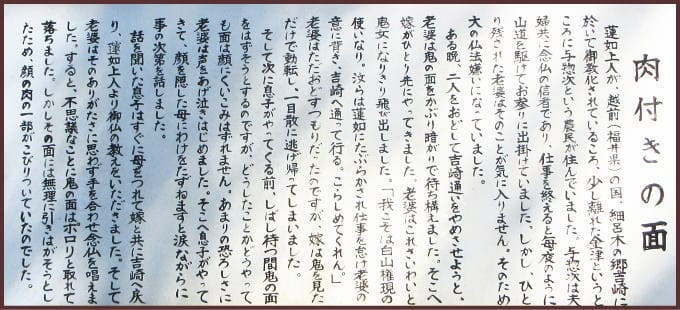 肉付きの面
蓮如上人が、越前（福井県）の国、細呂木の郷吉崎に
於いて御教化されているころ、少し離れた金津というと
ころに与惣次という農民が住んでいました。与惣次は夫
婦共に念仏の信者であり、仕事を終えると毎夜のように
山道を駆けてお参りに出掛けていました。しかし、ひと
り残された老婆はそのことが気に入りません。そのため
大の仏法嫌いになっていました。
ある晩、二人をおどして吉崎通いをやめさせようと、
老婆は鬼の面をかぶり暗がりで待ち構えました。そこへ
嫁がひとり先にやってきました。老婆はこれさいわいと
鬼女になりきり飛び出しました。「我こそは白山権現の
使いなり。汝らは蓮如にたぶらかされ仕事を怠け老婆の
意に背き、吉崎へ通って行る。こらしめてくれん。」
老婆はただおどすつもりだったのですが、嫁は鬼を見た
だけで動転し、一目散に逃げ帰ってしまいました。
そして次に息子がやってくる前、しばし待つ間鬼の面
をはずそうとするのですが、どうしたことかどうやって
も面は顔にくいこみはずれません。あまりの恐ろしさに
老婆は声をあげ泣きはじめました。そこへ息子がやって
きて、顔を隠した母にわけをたずねますと涙ながらに
事の次第を話しました。
話を聞いた息子はすぐに母をつれて嫁と共に吉崎へ戻
り、蓮如上人より御仏の教えをいただきました。そして
老婆はそのありがたさに思わず手を合わせ念仏を唱えま
した。すると、不思議なことに鬼の面はポロリと取れて
落ちました。しかしその面には無理に引きはがそうとし
たため、顔の肉の一部がこびりついていたのでした。